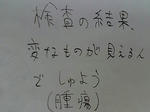 検査の結果、
変なものが見えるん
でしゅよう
(腫瘍)